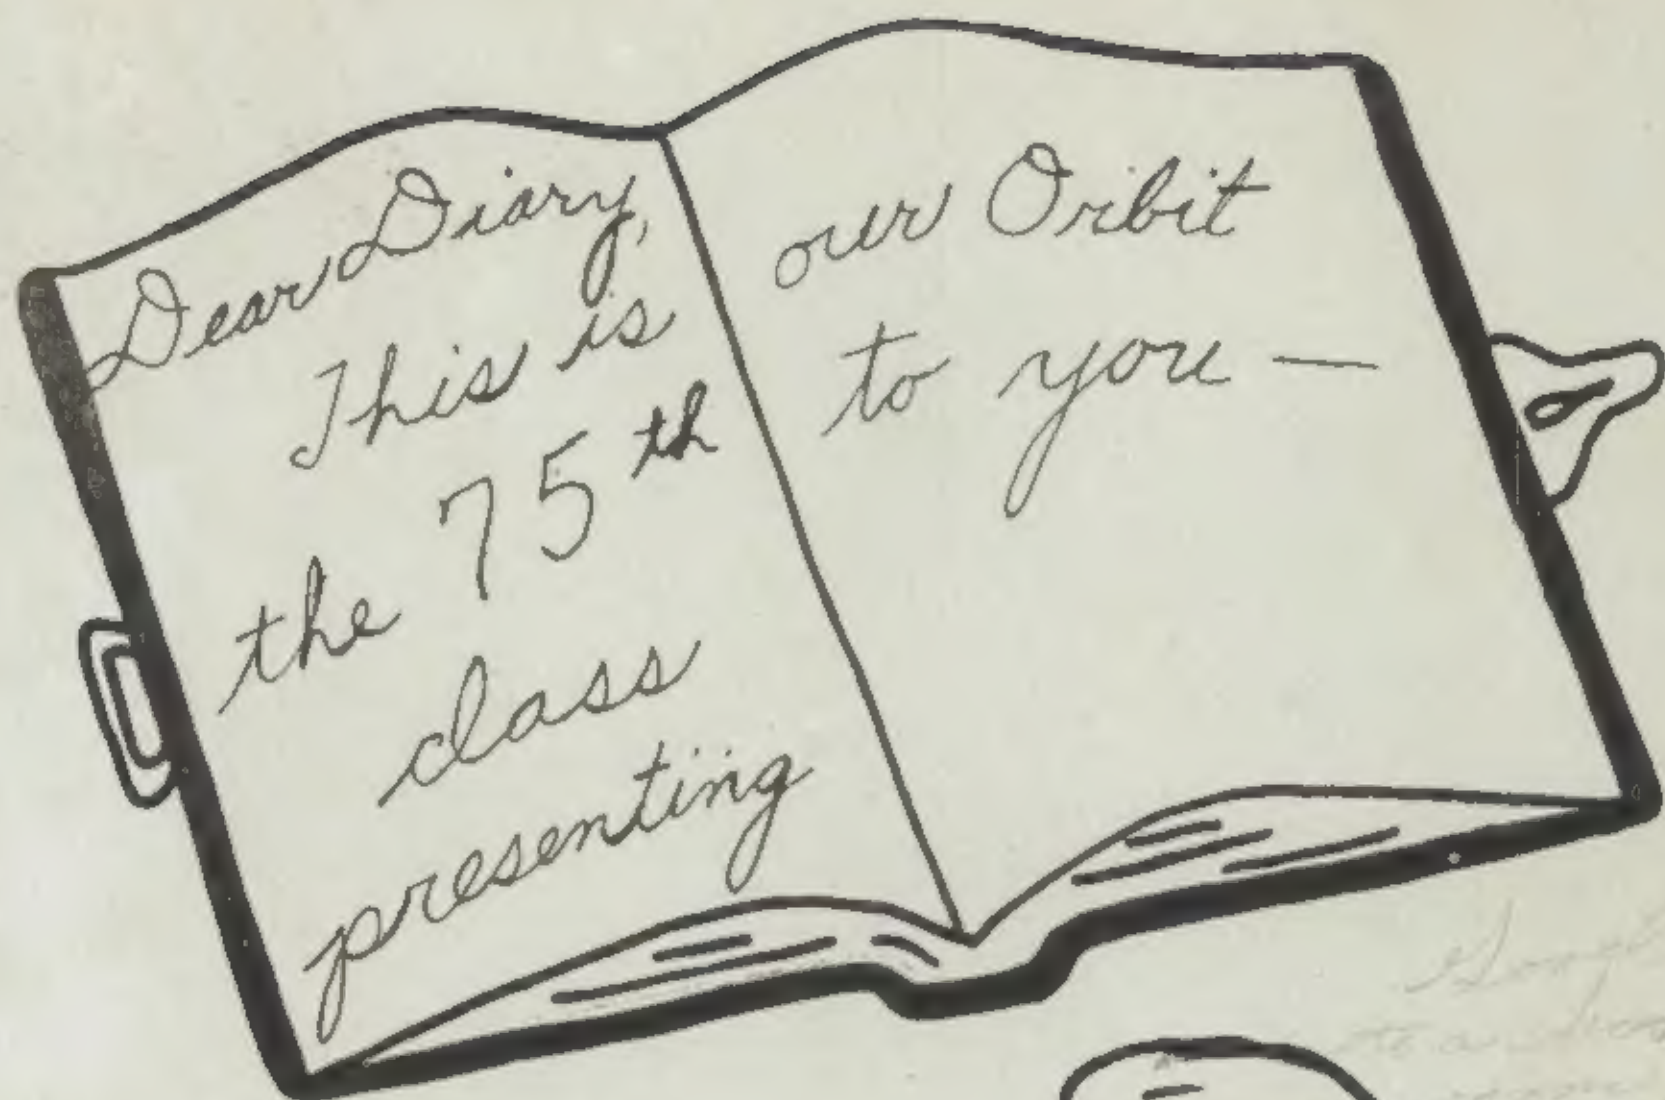 Dear Diary,
This is
the 75th
class
presenting
our Orbit
to you —
to a